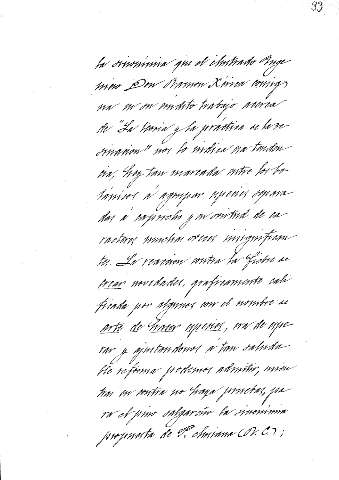 93
la sinonimia que el ilustrado Inge-
niero Don Ramon Xérica consig-
na en su inédito trabajo acerca
de "La teoria y la práctica de la or-
denacion" nos lo indica esa tenden-
cia, hoy tan marcada entre los bo-
tánicos á agrupar especies separa-
das á capricho y en virtud de ca-
racteres muchas veces insignifican-
tes. La reaccion contra la fiebre de
crear novedades, graficamente cali-
ficada por algunos con el nombre de
arte de hacer especies, era de espe-
rar y ajustandonos á tan saluda-
ble reforma podemos admitir, mien-
tras en contra no haya pruebas, pa-
ra el pino salgareño la sinonimia
propuesta de P. clusiana (N. C.);